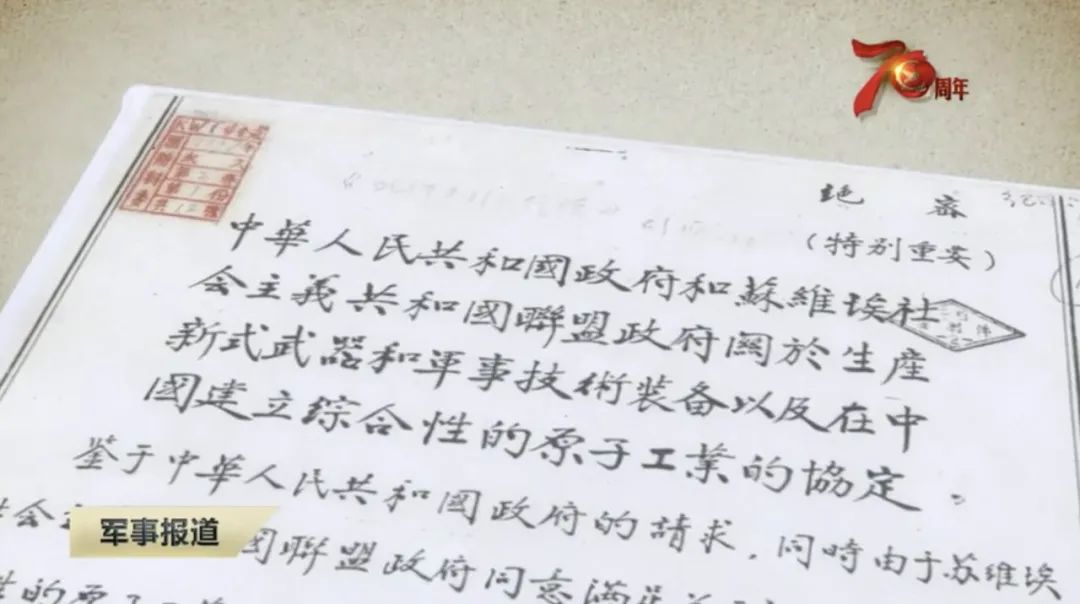 70周年
绝密
（特别重要）
中華人民共和國政府和蘇維埃社
会主義共和國聯盟政府關於生産
新式武器和軍事技術装备以及在中
國建立综合性的原子工業的協定。
鉴于中華人民共和國政府的請求，同時由于苏维埃
社会主
國聯盟政府同意满足
性的原子工業
军事报道